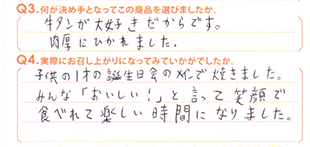 Q3.何が決め手となってこの商品を選びましたか。
牛タンが大好きだからです。
肉厚にひかれました。
Q4.実際にお召し上がりになってみていかがでしたか。
子供の1才の誕生日会のメインで焼きました。
みんな「おいしい!」と言って笑顔で
食べれて楽しい時間になりました。